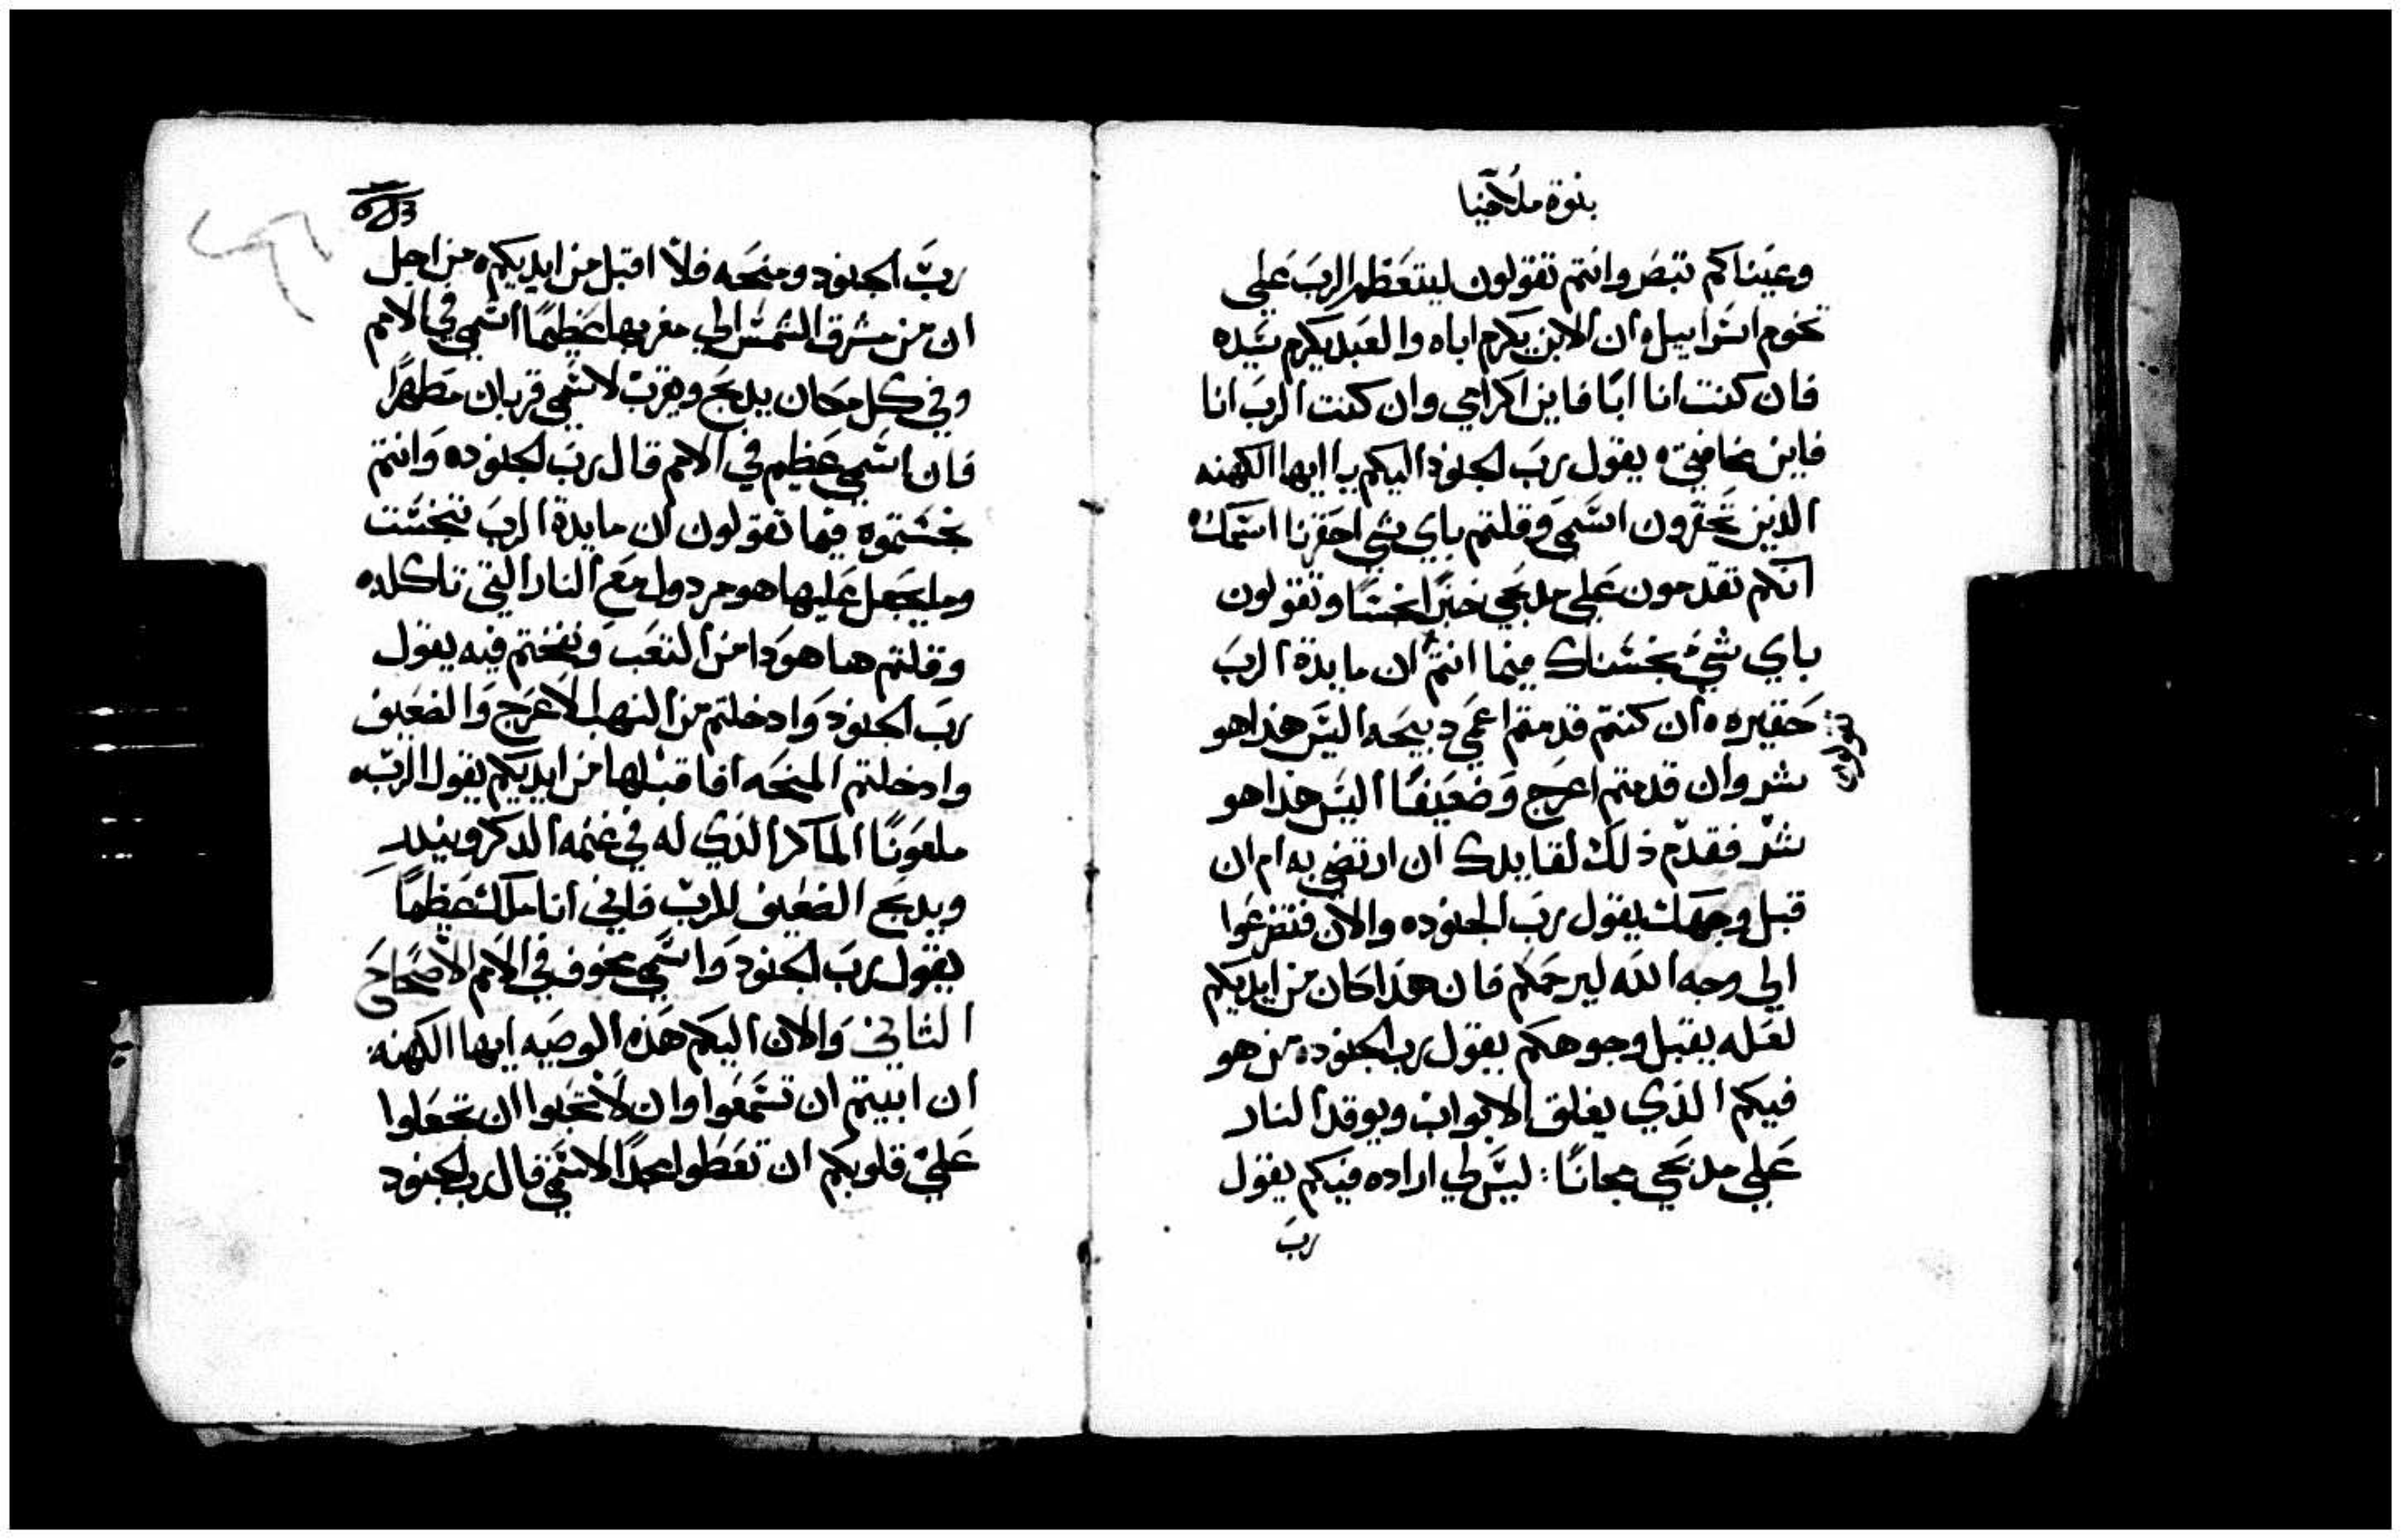 نبوة ملاخيا
وعيناكم تبصر وانتم تقولون ليتعظم الرب على
تخوم اسراييل ان الابن يكرم اباه والعبد يكرم سيده
فان كنت انا ابًا فاين اكرامي وان كنت الرب انا
فاين مخافتي يقول رب الجنود اليكم يا ايها الكهنه
الذين تحقرون اسمي وقلتم باي شي احقرنا اسمك
انكم تقدمون على مدبحي خبزًا نجسًا وتقولون
باي شيء نجسناك فيما انتم ان مايدة الرب
تقولون
حقيره ان كنتم قدمتم اعمى دبيحه اليس هذا هو
شر وان قدمتم اعرج وضعيفًا اليس هذا هو
شر فقدّم ذلك لقايدك ان ارتضي به ام ان
قبل وجهك يقول رب الجنود والان فتضرعوا
الى وجه الله ليرحمكم فان هذا كان من ايديكم
لعله يقبل وجوهكم يقول رب الجنود من هو
فيكم الذي يغلق الابواب ويوقد النار
على مدبحي مجانًا: ليس لي اراده فيكم يقول
رب
رب الجنود ومنحه فلا اقبل من ايديكم من اجل
ان من مشرق الشمس الى مغربها عظيمًا اسمي في الامم
وفي كل مكان يدبح ويقرب لاسمي قربان مطهرًا
فان اسمي عظيم في الامم قال رب الجنود وانتم
نجستموه فيما تقولون ان مايدة الرب تنجست
وما يجعل عليها هو مردول مع النار التي تاكله
وقلتم ها هودا من التعب ونفختم فيه يقول
رب الجنود وادخلتم من النهب الاعرج والضعيف
وادخلتم المنحه افاقبلها من ايديكم يقول الرب
ملعونًا الماكر الذي له في غنمه الدكر وينذر
ويدبح الضعيف للرب فاني انا ملك عظيمًا
يقول رب الجنود واسمي مخوف في الامم الاصحاح
الثاني والان اليكم هذه الوصيه ايها الكهنه
ان ابيتم ان تسمعوا وان لا تحبوا ان تجعلوا
على قلوبكم ان تعطوا مجدًا لاسمي قال رب الجنود